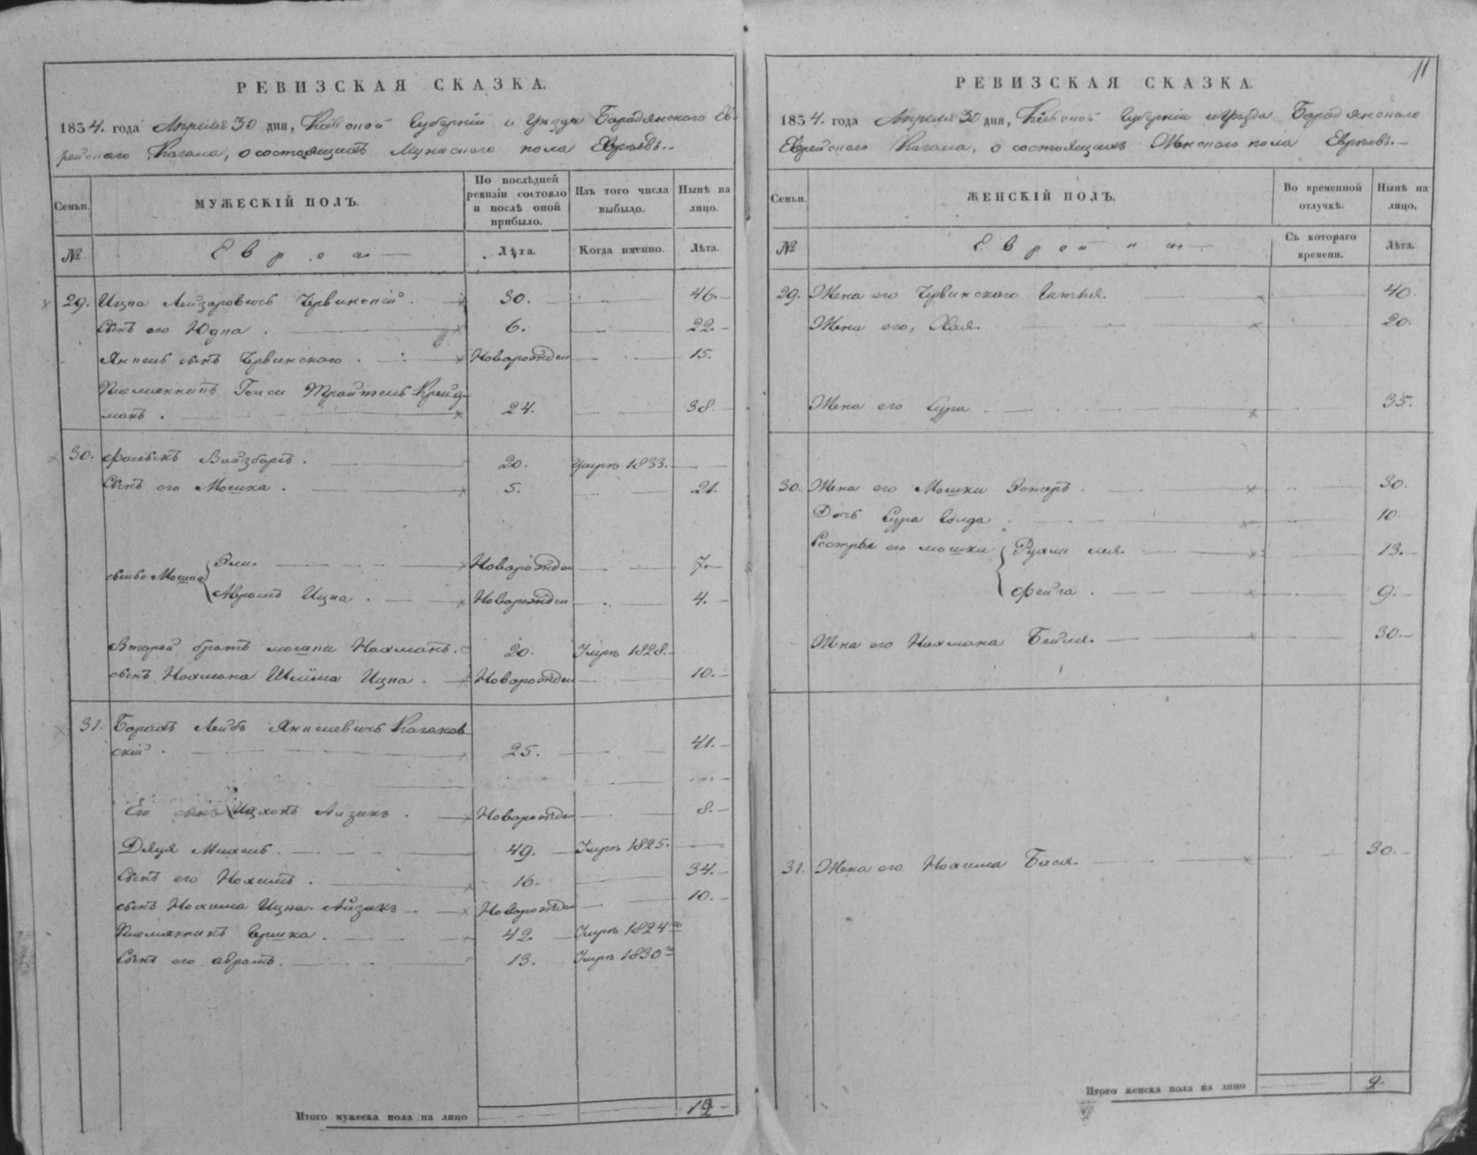 РЕВИЗСКАЯ СКАЗКА.
1834. года Апреля 30 дня, Кіевской Губерніи и Уезда Бородянского Ев-
рейского Кагала, о состоящихъ Мужеского пола Евреевъ.
Семьи.
МУЖЕСКІЙ ПОЛЪ.
По послѣдней ревизіи состояло и послѣ оной прибыло.
Изъ того числа выбыло.
Нынѣ на лицо.
№
Евреи
Лѣта.
Когда именно.
Лѣта.
29. Ицка Лейзаровичь Червинскій 30. 46.
Сынъ его Юдка 6. 22.
Янкель сынъ Червинского Новорожден 15.
Племянникъ Гойсіи
манъ 24. 38.
30. Вайзбергъ 20. Умре 1833.
Сынъ его Мошка 5. 21.
Эли Новорожден 7.
Мошки
Аврамъ Ицка Новорожден 4.
Второй братъ Мошки Нахманъ 20. Умре 1828.
сынъ Нахмана Шлёма Ицка Новорожден 10.
31. Лейбъ Янкелевичь
скій 25. 41.
Его сынъ Айзикъ Новорожден 8.
Дядя 49. Умре 1825.
Сынъ его Нохимъ 16. 34.
сынъ Нохима Ицка Айзикъ Новорожден 10.
Племянникъ Гершка 42. Умре 1824
Сынъ его Аврамъ 13. Умре 1830
Итого мужеска пола на лицо 12
11
РЕВИЗСКАЯ СКАЗКА.
1834. года Апреля 30 дня, Кіевской Губерніи и Уезда Бородянского
Еврейского Кагала, о состоящихъ Женского пола Евреевъ.
Семьи.
ЖЕНСКІЙ ПОЛЪ.
Во временной отлучкѣ.
Нынѣ на лицо.
№
Еврейки
Съ котораго времени.
Лѣта.
29. Жена его Червинского 40.
Жена его, Хая. 20.
Жена его Сура 35.
30. Жена его Мошки Эстеръ 30.
Дочь Сура Голда 10.
Сестры его Мошки 13.
Фейга 9.
Жена его Нахмана Бейля 30.
31. Жена его Нохима Бася. 30.
Итого женска пола на лицо 9.